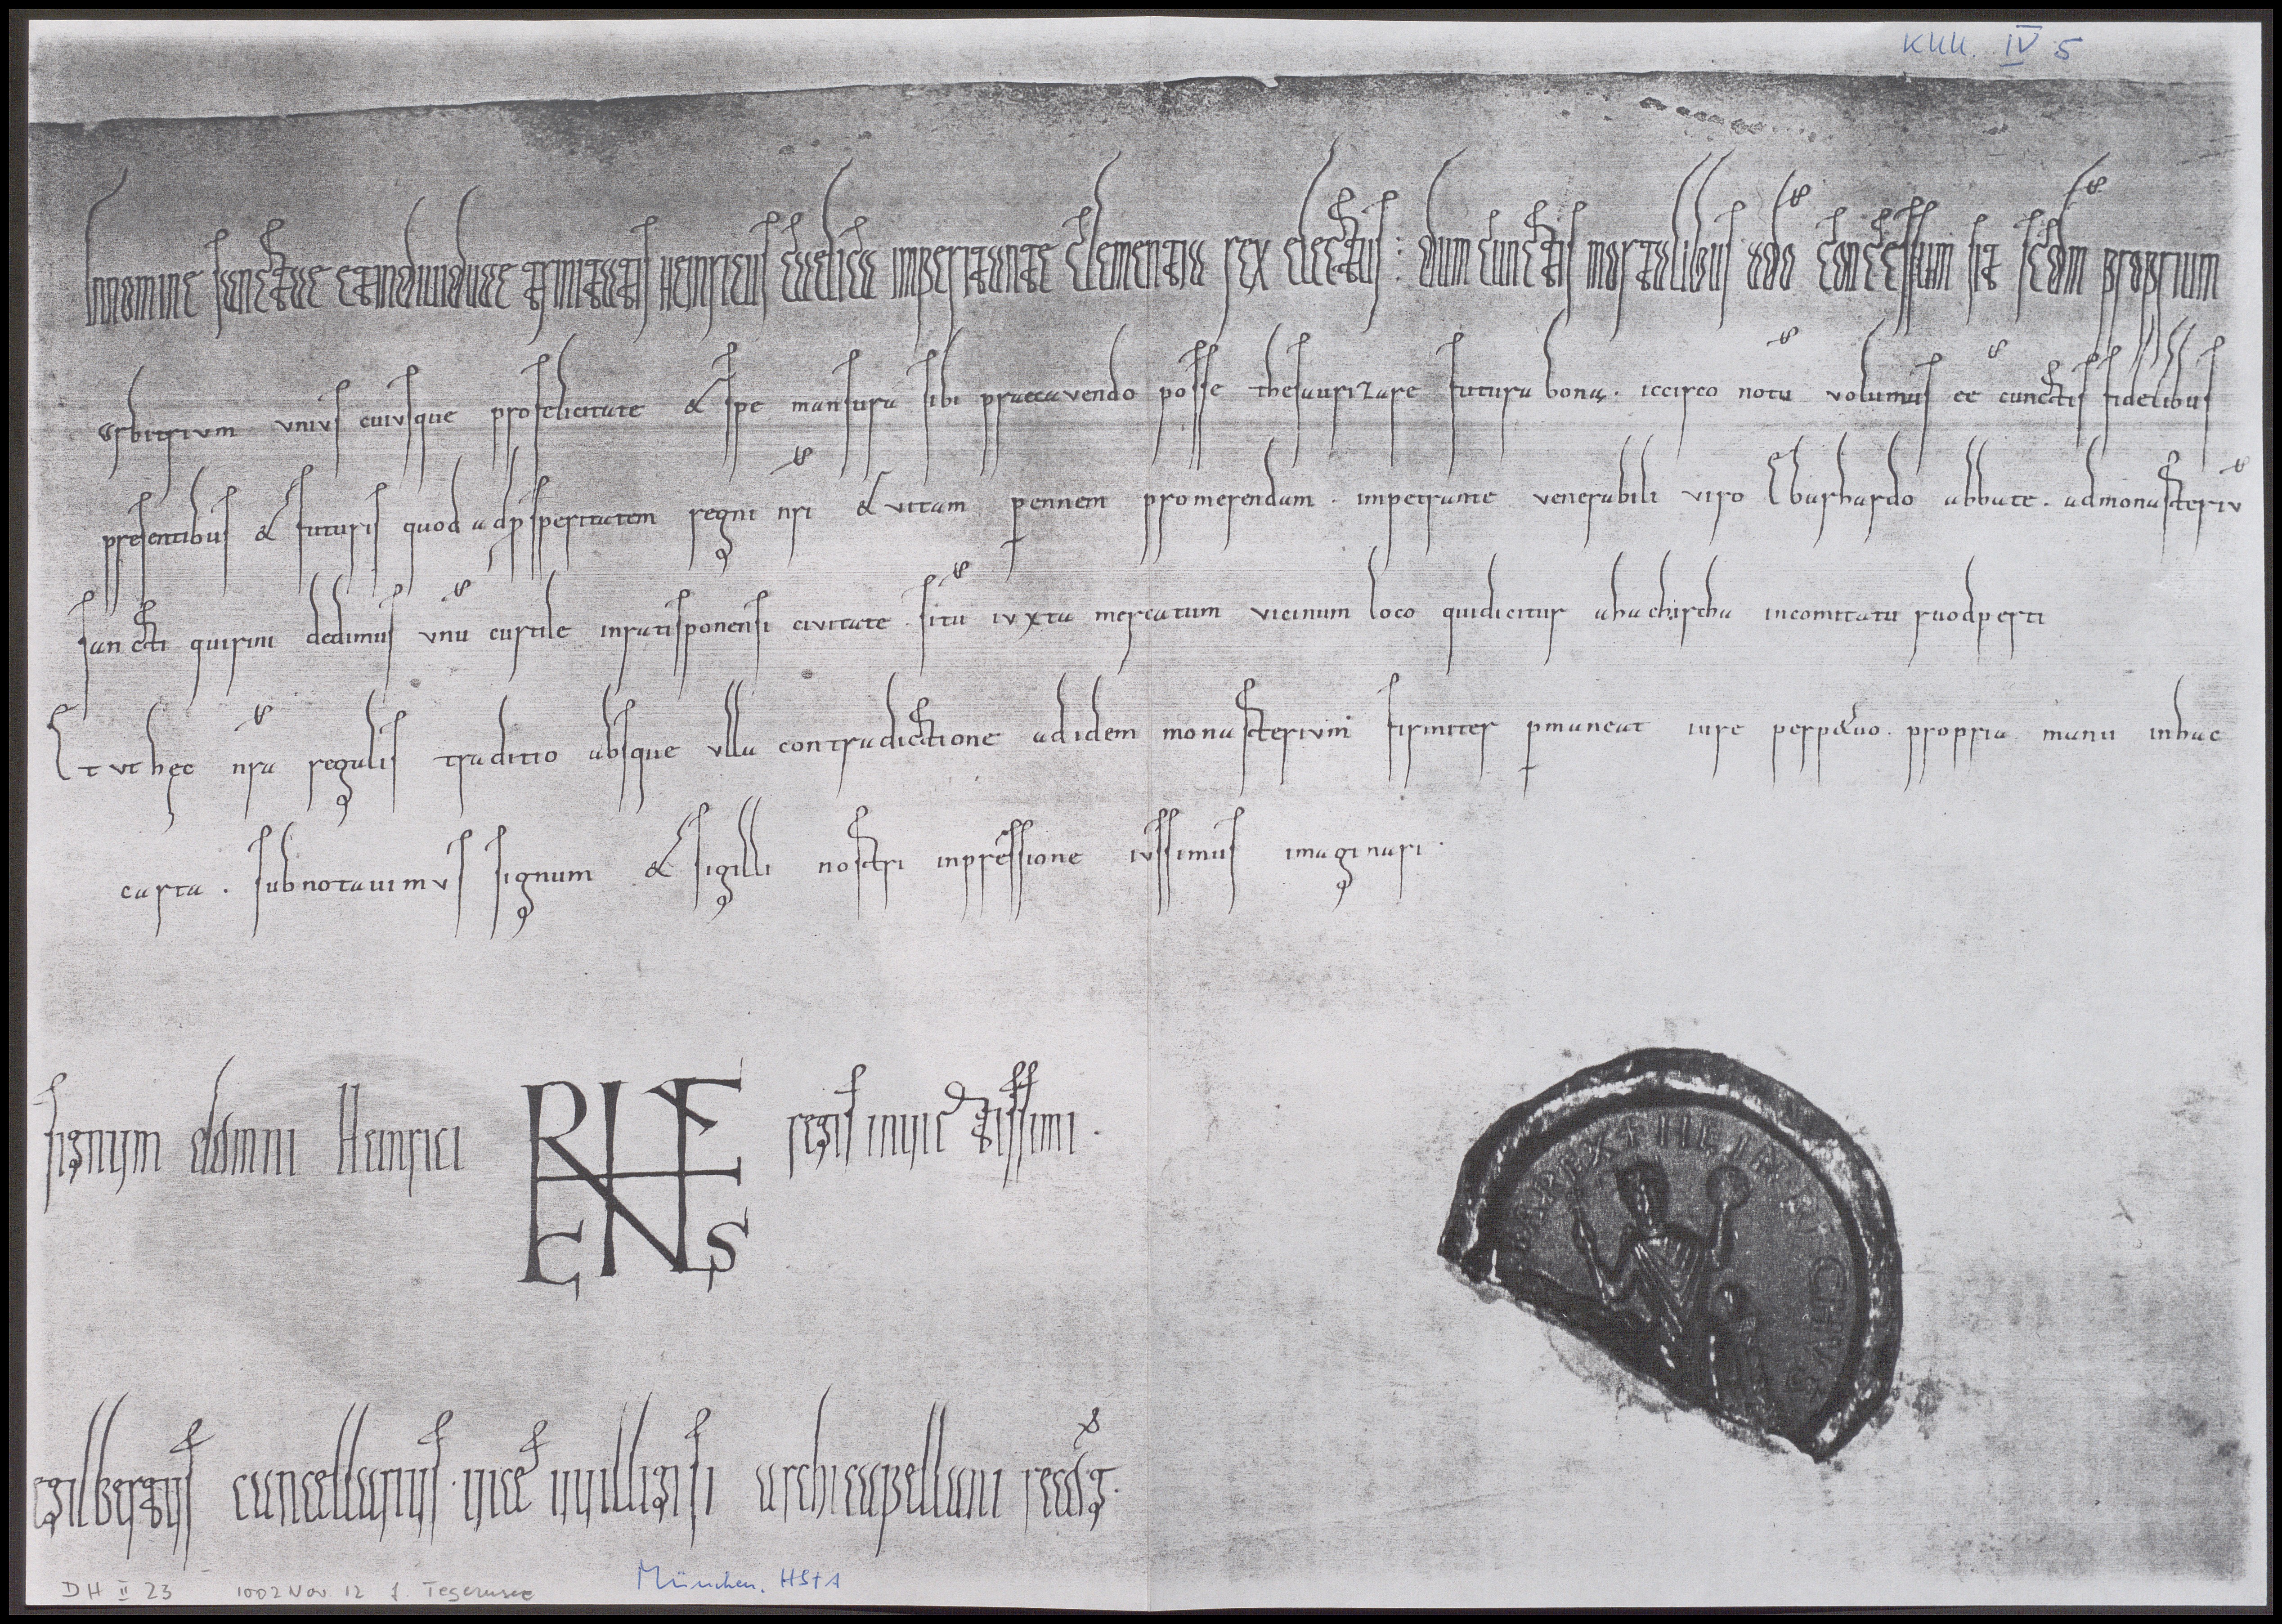 KUU. IV 5
In nomine sanctae et indiuiduae trinitatis Heinricus caelica imperitante clementia rex electus: dum cunctis mortalibus ado concessum sit scdm proprium
arbitrium unius cuiusque pro felicitate & spe mansura sibi praecavendo posse thesaurizare futura bona. iccirco notu volumus ee cunctis fidelibus
presentibus & futuris quod ad psperitatem regni nri & vitam pennem promerendam. impetrante venerabili viro Ebarhardo abbate. ad monasteriv
sancti quirini dedimus vnu curtile in ratisponensi civitate. situ ivxta mercatum vicinum loco qui dicitur ahachircha in comitatu ruodperti
Et vt hęc nra regalis traditio absque vlla contradictione ad idem monasterivm firmiter pmaneat iure perp&uo. propria manu in hac
carta. subnotauimvs signum & sigilli nostri inpressione iussimus imaginari.
signum domni Heinrici regis inuictissimi.
egilbertus cancellarius uice uuilligisi archicapellani recog.
HEINRICHVS
DH II 23 1002 Nov. 12 f. Tegernsee
München, HStA